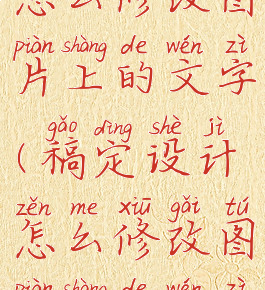 怎么修改图
piàn shàng de wén zì
片上的文字
gǎo dìng shè jì
(稿定设计
zěn me xiū gǎi tú
怎么修改图
piàn shàng de wén zì